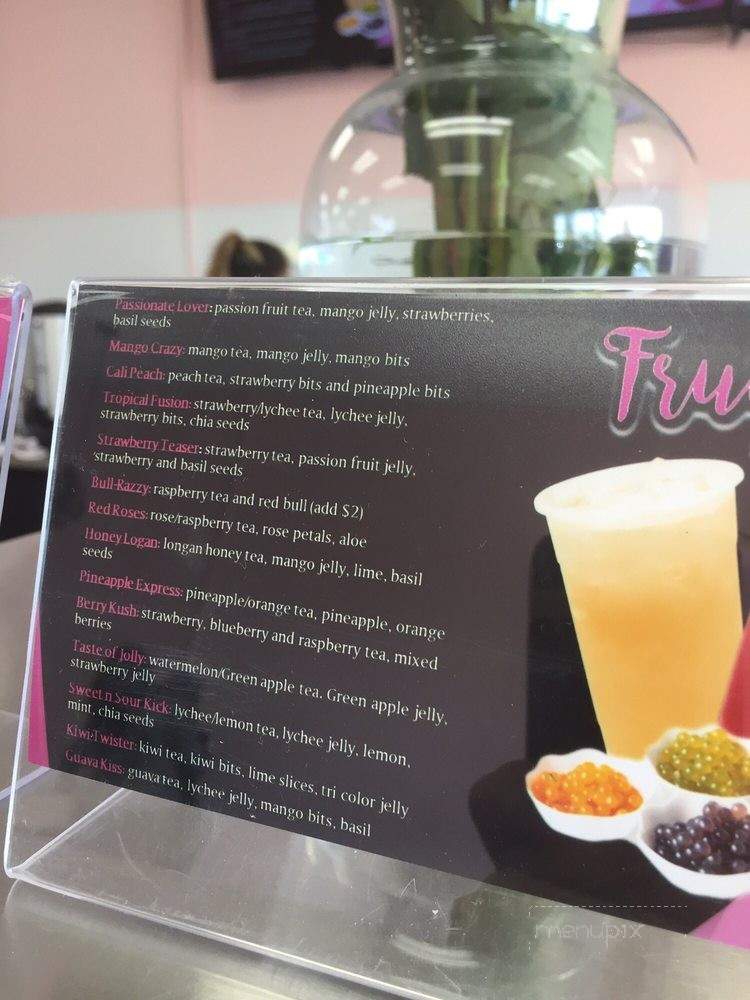 Passionate Lover: passion fruit tea, mango jelly, strawberries,
basil seeds
Mango Crazy: mango tea, mango jelly, mango bits
Cali Peach: peach tea, strawberry bits and pineapple bits
Tropical Fusion: strawberry/lychee tea, lychee jelly,
strawberry bits, chia seeds
Strawberry Teaser: strawberry tea, passion fruit jelly,
strawberry and basil seeds
Bull-Razzy: raspberry tea and red bull (add $2)
Red Roses: rose/raspberry tea, rose petals, aloe
Honey Logan: longan honey tea, mango jelly, lime, basil
seeds
Pineapple Express: pineapple/orange tea, pineapple, orange
Berry Kush: strawberry, blueberry and raspberry tea, mixed
berries
Taste of Jolly: watermelon/Green apple tea. Green apple jelly,
strawberry jelly
Sweet n Sour Kick: lychee/lemon tea, lychee jelly, lemon,
mint, chia seeds
Kiwi-Twister: kiwi tea, kiwi bits, lime slices, tri color jelly
Guava Kiss: guava tea, lychee jelly, mango bits, basil
Fru
menupix